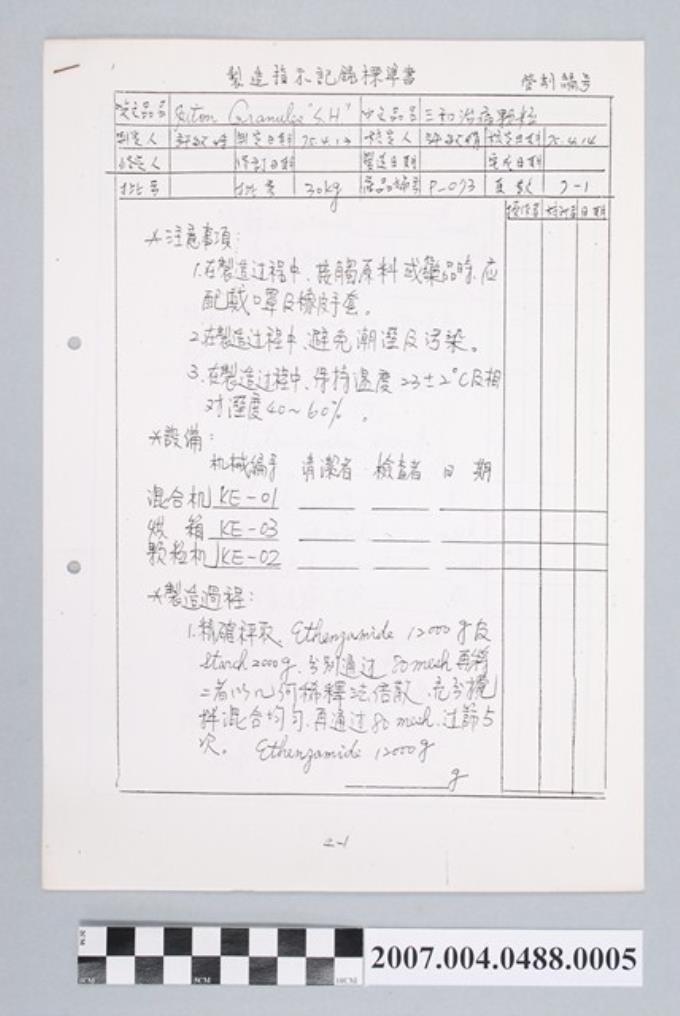 製造指示記錄標準書
管制編號
英文品名 Granules "S.H" 中文品名 三和治痛顆粒
制定人 制定日期 75.4.13 核定人 核定日期 75.4.14
修定人 修訂日期 製造日期 完成日期
批号 批量 30kg 產品編号 P-073 頁數 2-1
操作者 核對者 日期
*注意事項:
1.在製造过程中、接觸原料或藥品時、应
配戴口罩及橡皮手套。
2.在製造过程中、避免潮溼及污染。
3.在製造过程中、保持溫度23±2°C及相
对溼度40~60%。
*設備:
机械編号 清潔者 檢查者 日期
混合机 KE-01
烘箱 KE-03
顆粒机 KE-02
*製造過程:
1.精確秤取、Ethenzamide 12000g及
Starch 2000g、分別通过 80mesh再將
二者以几何稀釋法倍散、充分攪
拌混合均勻、再通过80mesh、过篩5
次。 Ethenzamide 12000g
g
2-1
5CM
10CM
2007.004.0488.0005